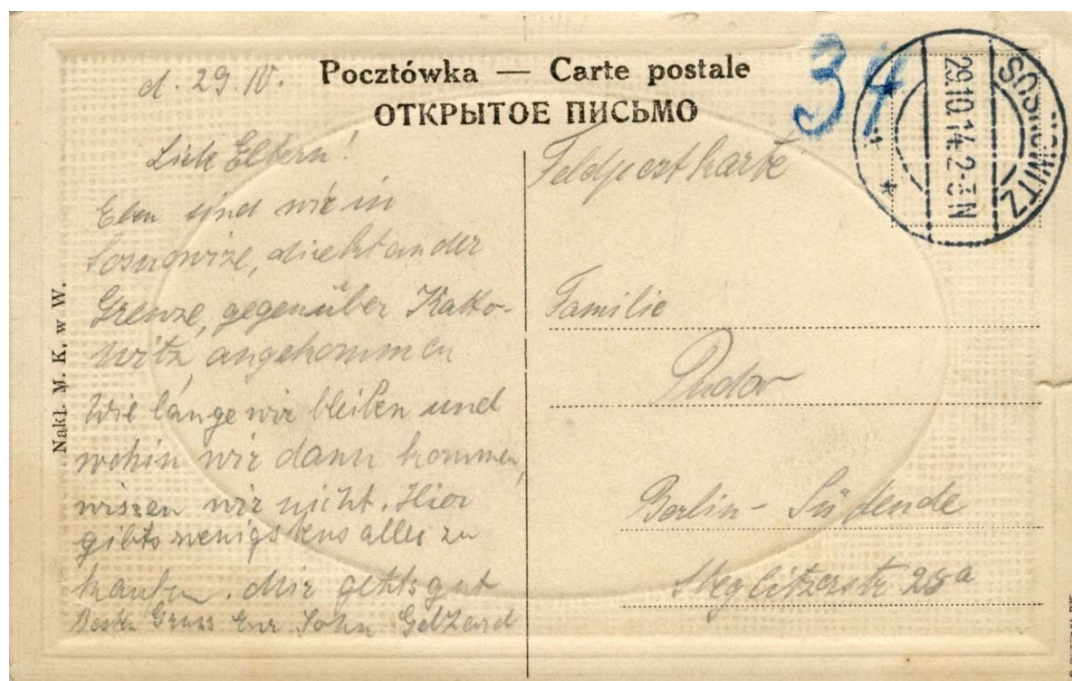 Pocztówka — Carte postale
ОТКРЫТОЕ ПИСЬМО
34
SOSNOWITZ
29.10.14.2-3N
d. 29. IV.
Liebe Eltern!
Eben sind wir in
Sosnowize, direkt an der
Grenze, gegenüber Katto-
witz, angekommen
Wie lange wir bleiben und
wohin wir dann kommen,
wissen wir nicht. Hier
gibts wenigstens alles zu
kaufen. Mir gehts gut
Besten Gruss Eur Sohn
Feldpostkarte
Familie
Pudor
Berlin - Südende
Steglitzerstr 28a
Nakł. M. K. w W.